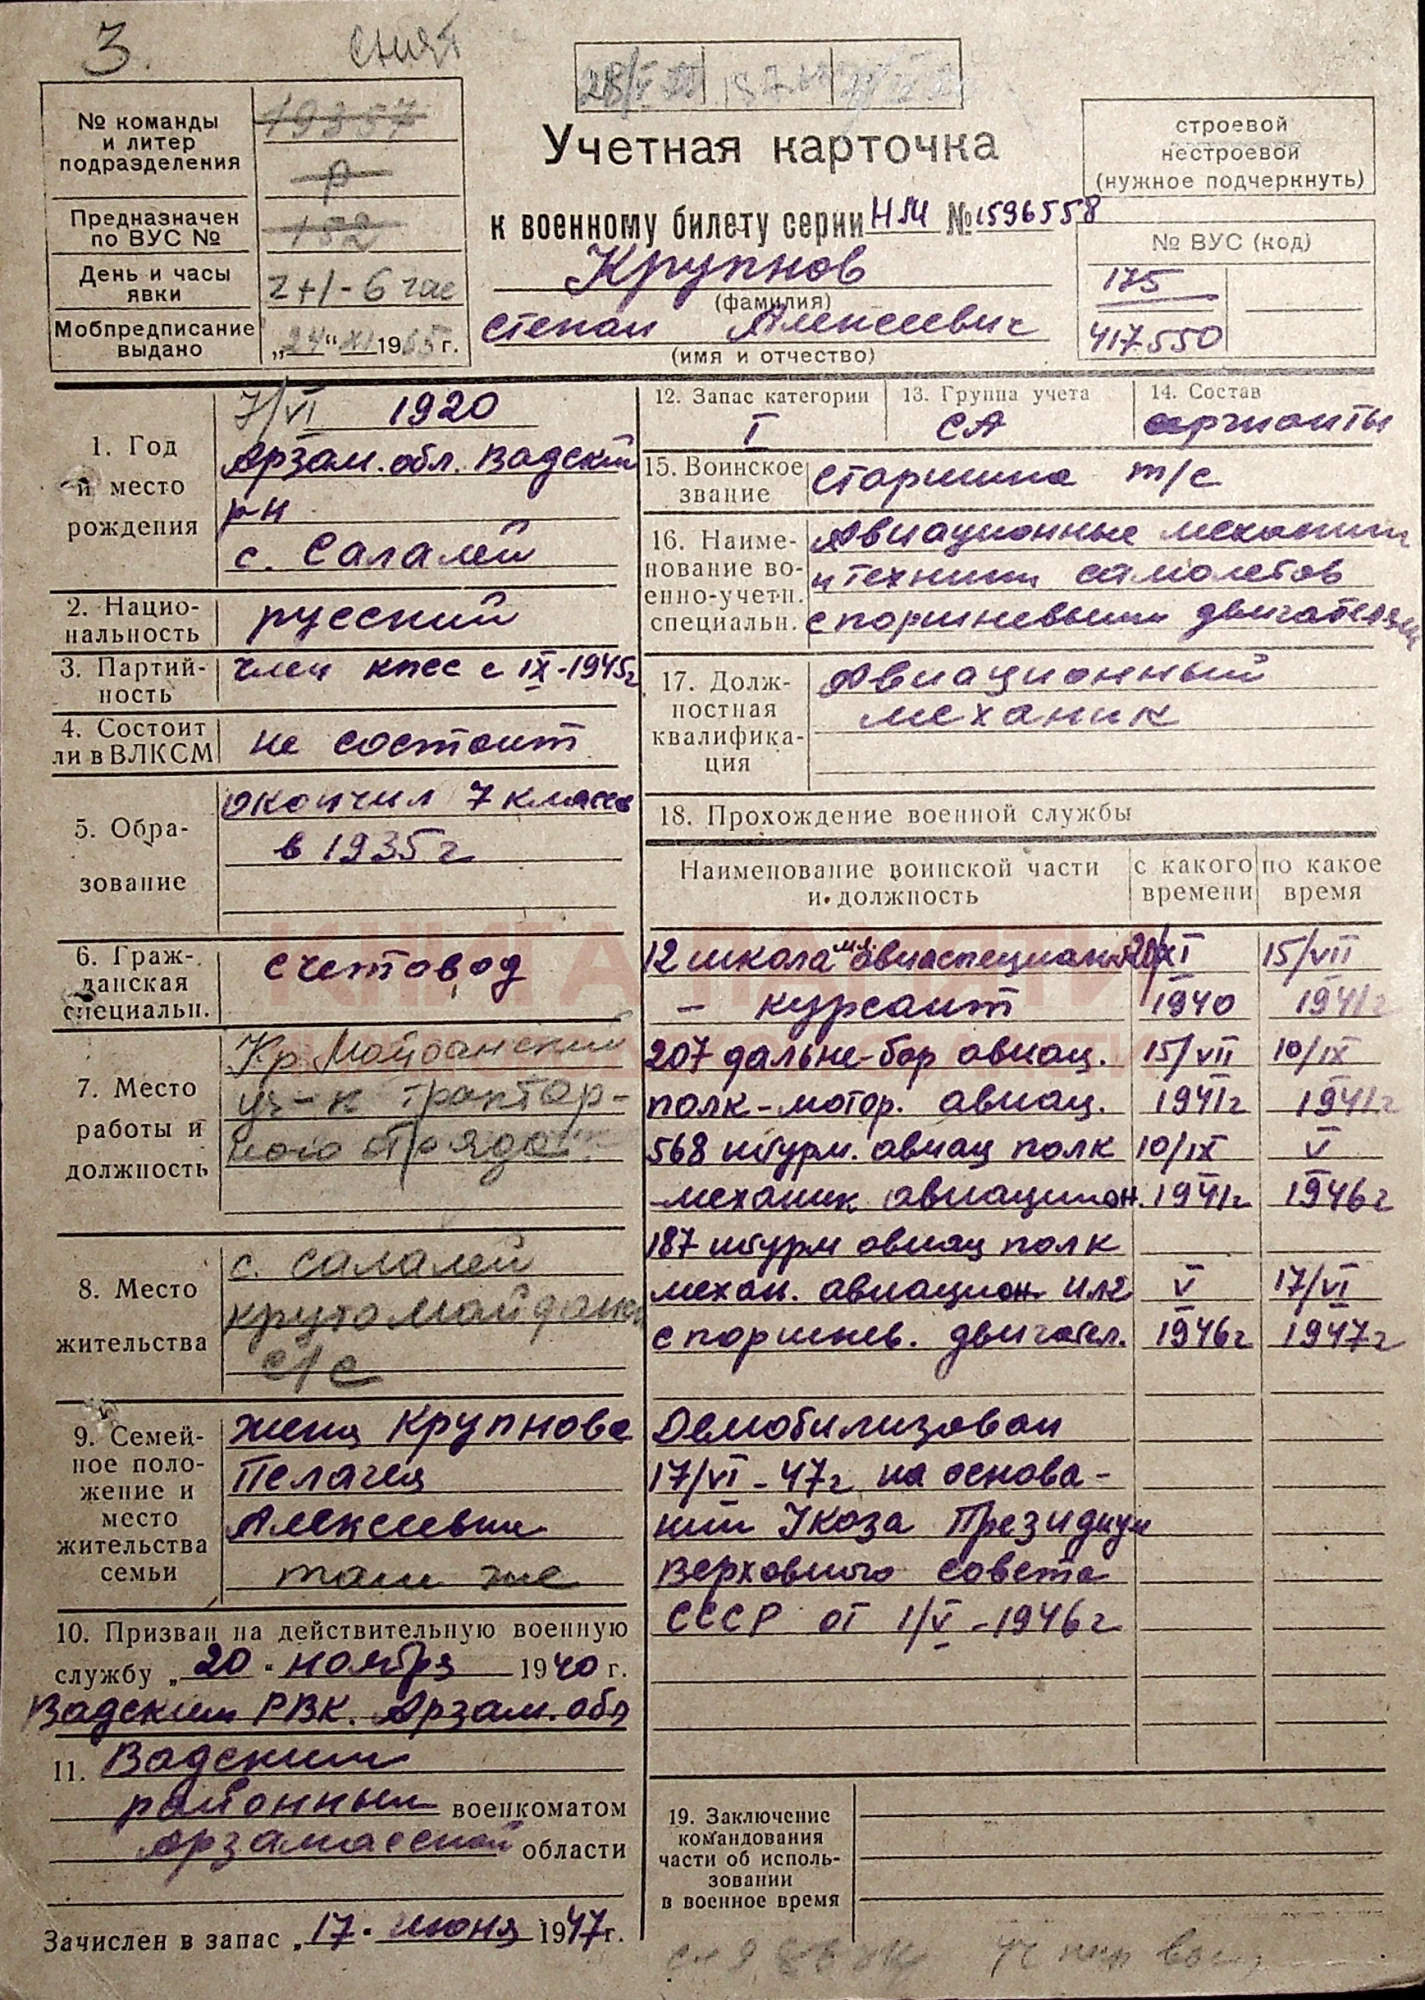 3.
снят
№ команды
и литер
подразделения
19357
р
Предназначен
по ВУС №
152
День и часы
явки
2+1-6 час
Мобпредписание
выдано
„24“ XI 1965 г.
Учетная карточка
к военному билету серии НМ №1596558
Крупнов
(фамилия)
Степан Алексеевич
(имя и отчество)
строевой
нестроевой
(нужное подчеркнуть)
№ ВУС (код)
175
417550
1. Год
и место
рождения
7/VI 1920
Арзам. обл. Вадский
рн
с. Салалей
2. Нацио-
нальность
русский
3. Партий-
ность
член кпсс с IX-1945г
4. Состоит
ли в ВЛКСМ
не состоит
5. Обра-
зование
окончил 7 классов
в 1935г
6. Граж-
данская
специальн.
счетовод
7. Место
работы и
должность
Кр Майданский
уч-к трактор-
ного отряда
8. Место
жительства
с. Салалей
крутомайданск
с/с
9. Семей-
ное поло-
жение и
место
жительства
семьи
жена Крупнова
Пелагея
Алексеевна
там же
10. Призван на действительную военную
службу „20“ ноября 1940 г.
Вадским РВК. Арзам. обл
11. Вадским
районным военкоматом
Арзамасской области
Зачислен в запас „17“ июня 1947 г.
12. Запас категории
I
13. Группа учета
СА
14. Состав
сержанты
15. Воинское
звание
старшина т/с
16. Наиме-
нование во-
енно-учетн.
специальн.
Авиационные механики
и техники самолетов
с поршневыми двигателями
17. Долж-
ностная
квалифика-
ция
Авиационный
механик
18. Прохождение военной службы
Наименование воинской части
и должность
с какого
времени
по какое
время
КНИГА ПАМЯТИ
12 школа мл. авиаспециалис 20/XI 15/VII
- курсант 1940 1941г
207 дальне-бор авиац. 15/VII 10/IX
полк-мотор. авиац. 1941г 1941г
568 штурм. авиац полк 10/IX V
механик авиацион. 1941г 1946г
187 штурм авиац полк
механ. авиацион ил2 V 17/VI
с поршнев. двигател. 1946г 1947г
Демобилизован
17/VI-47г на основа-
нии Указа Президиум
Верховного совета
СССР от 1/V-1946г
19. Заключение
командования
части об исполь-
зовании
в военное время